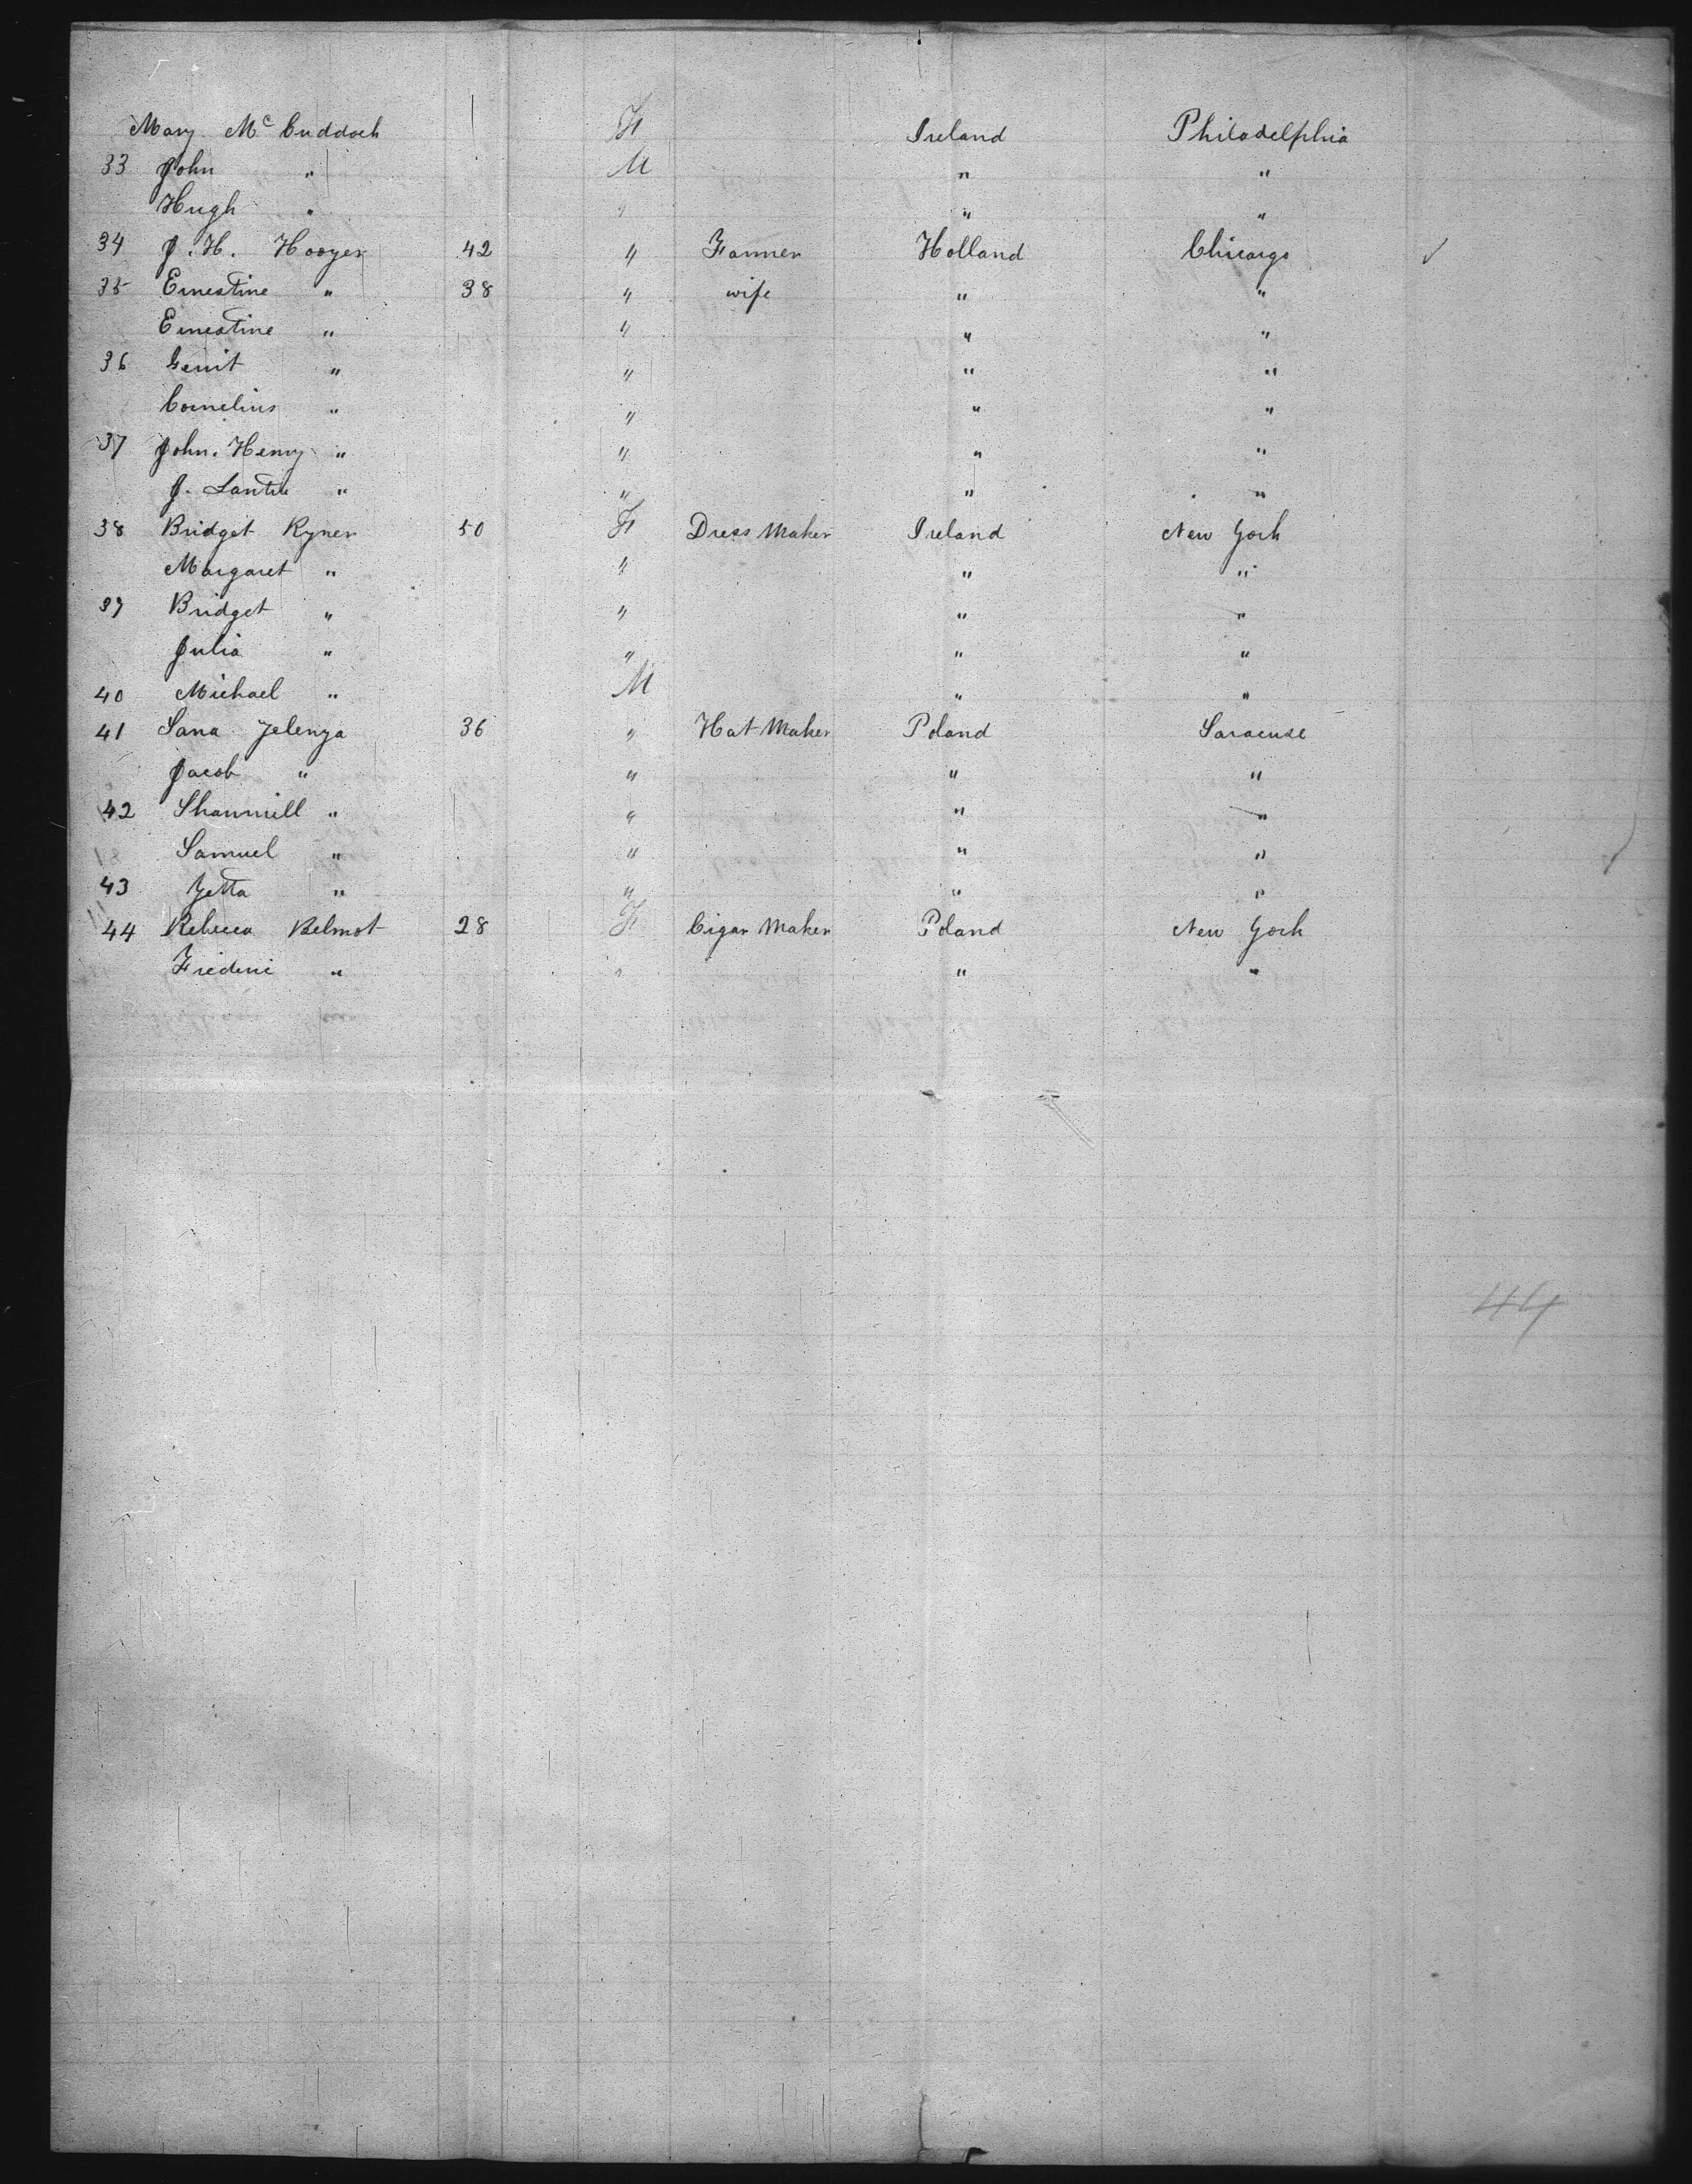 Mary Mc Cuddock F Ireland Philadelphia
33 John " M " "
Hugh " " " "
34 J. H. Hooyer 42 " Farmer Holland Chicargo
35 Ernestine " 38 " wife " "
Ernestine " " " "
36 Gerrit " " " "
Cornelius " " " "
37 John. Henry " " " "
J. " " " "
38 Bridget Ryner 50 F Dress Maker Ireland New York
Margaret " " " "
39 Bridget " " " "
Julia " " " "
40 Michael " M " "
41 Sana Jelenya 36 " Hat Maker Poland Saracuse
Jacob " " " "
42 Shammill " " " "
Samuel " " " "
43 Yetta " " " "
44 Rebecca Belmot 28 F Cigar Maker Poland New York
" " " "
44